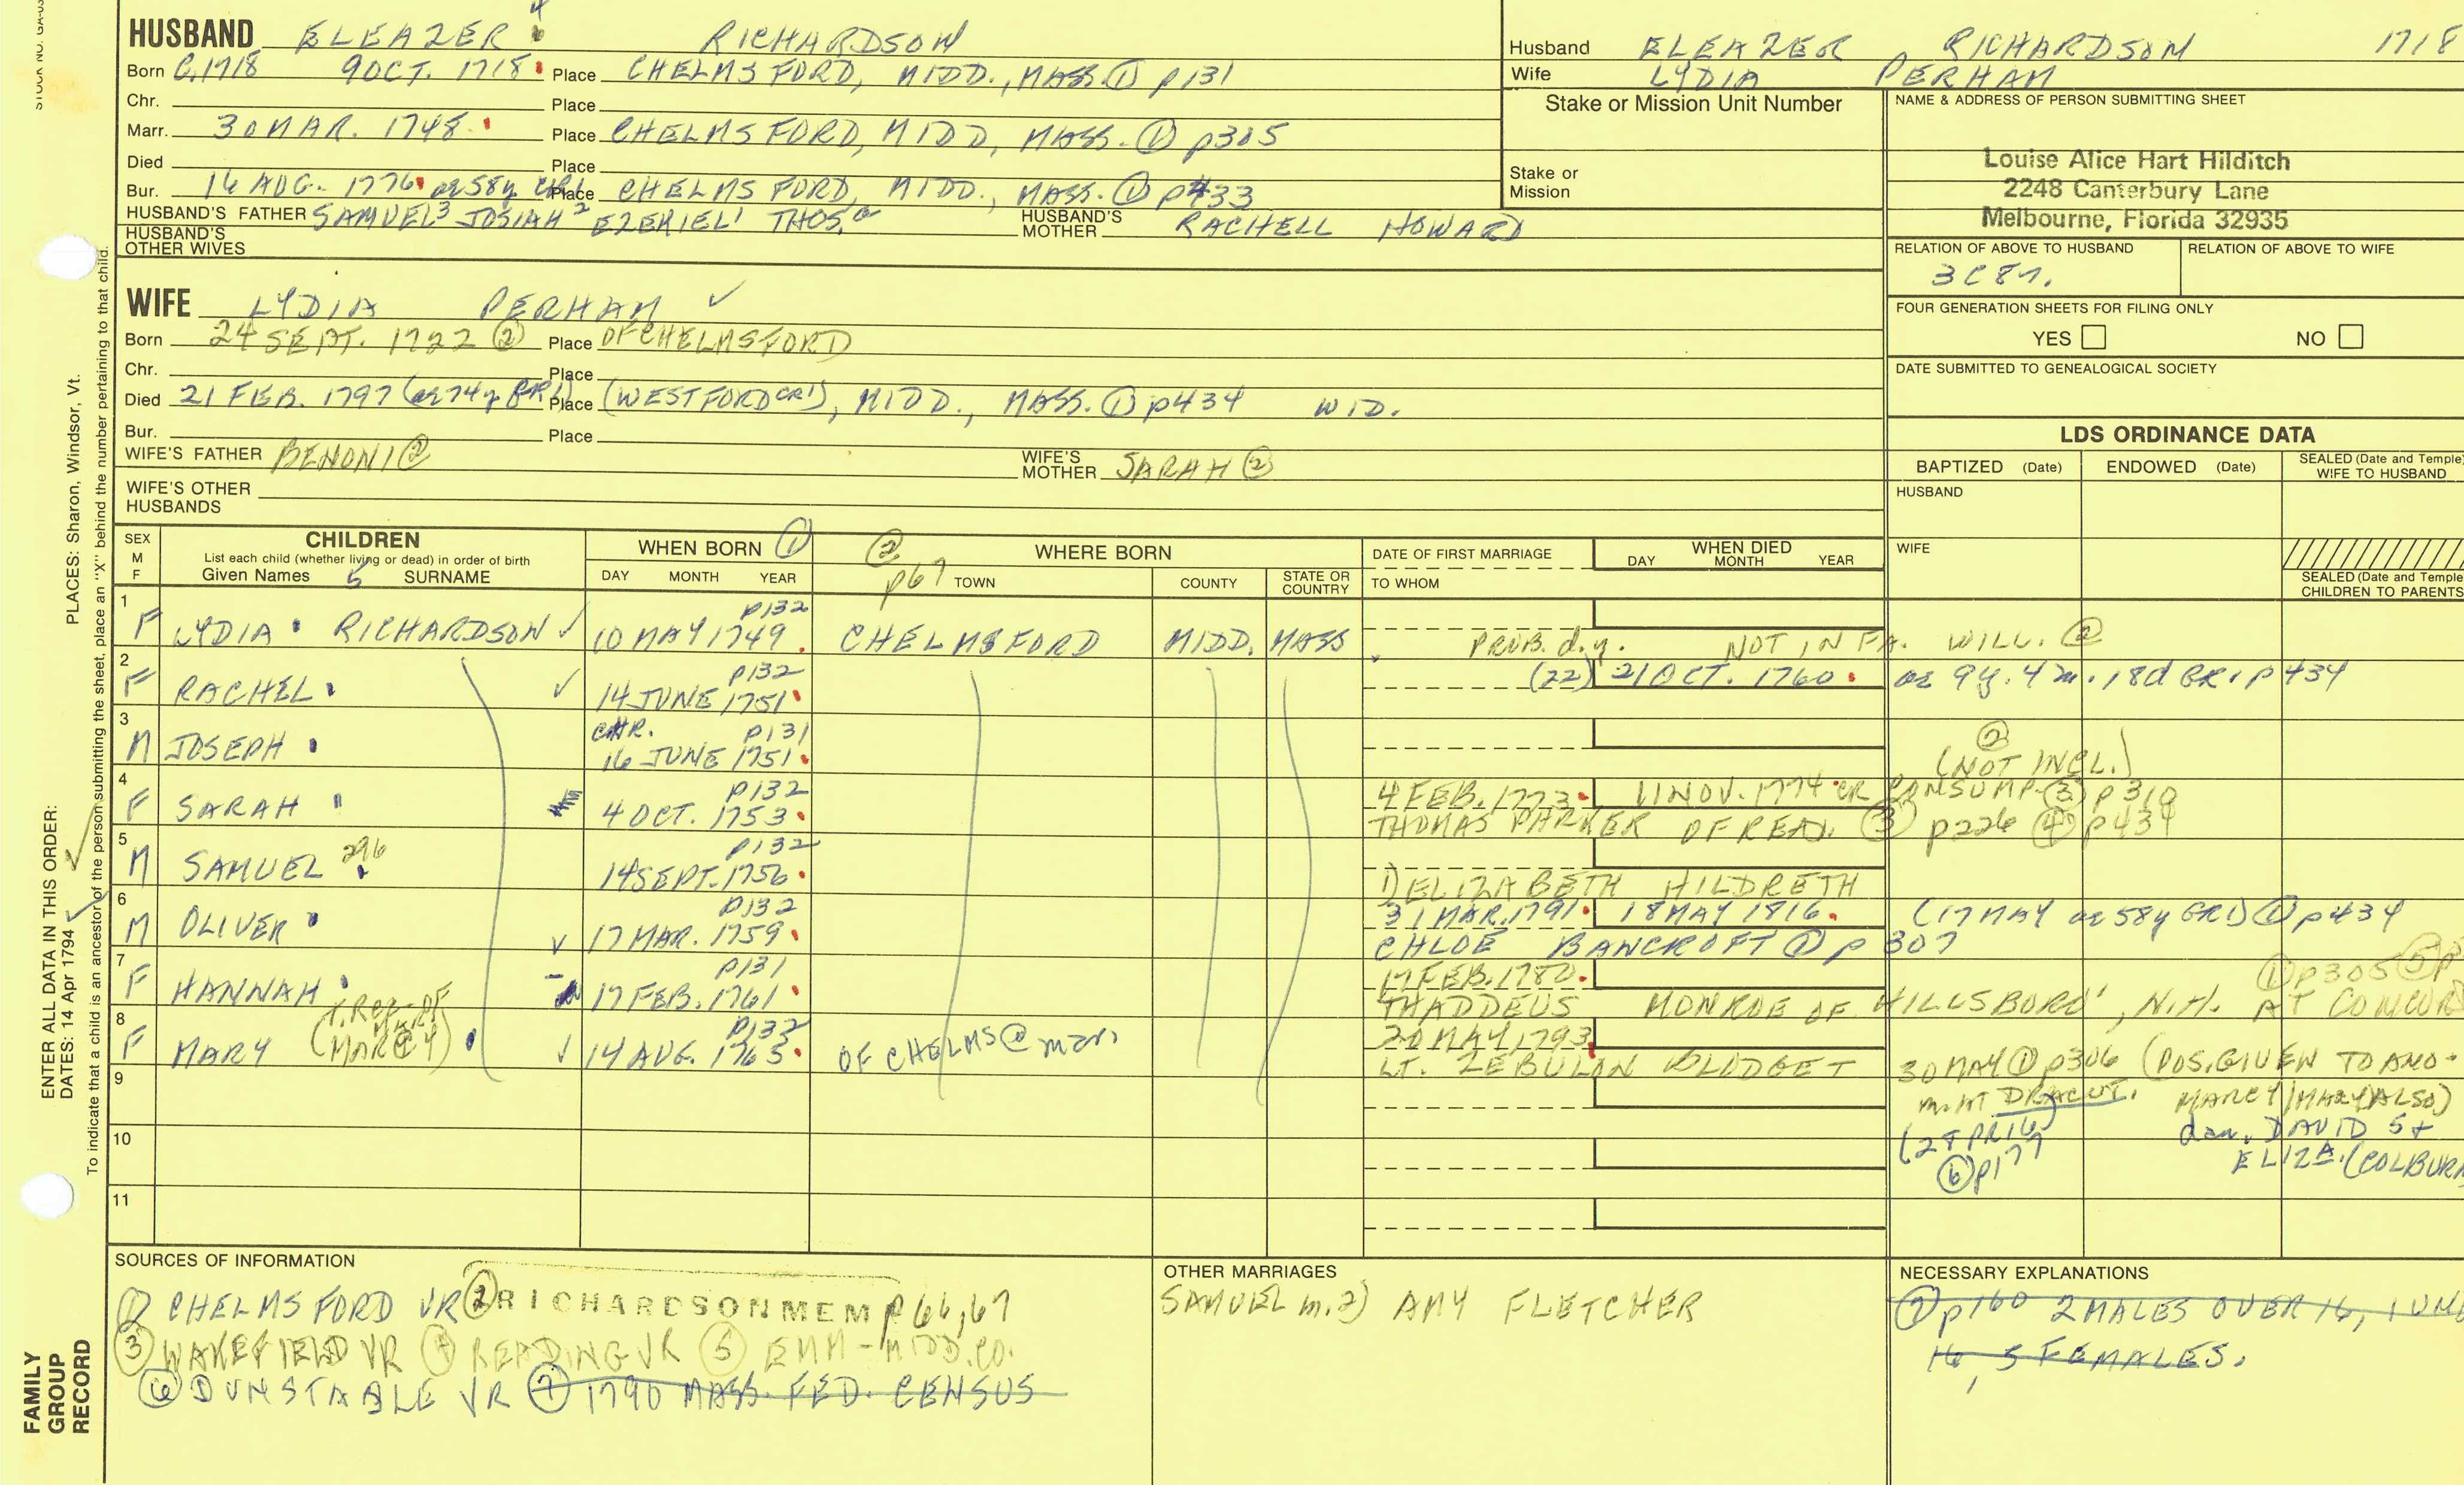 HUSBAND ELEAZER 4 RICHARDSON
Born C.1718 9 OCT. 1718 Place CHELMSFORD, MIDD., MASS. ① p131
Chr. Place
Marr. 30 MAR. 1748 Place CHELMSFORD, MIDD, MASS. ① p305
Died Place
Bur. 16 AUG. 1776 ae 58y GR1 Place CHELMSFORD, MIDD., MASS. ① p433
HUSBAND'S FATHER SAMUEL3 JOSIAH2 EZEKIEL1 THOS.a HUSBAND'S MOTHER RACHELL HOWARD
HUSBAND'S OTHER WIVES
Husband ELEAZER RICHARDSON 1718
Wife LYDIA PERHAM
Stake or Mission Unit Number
Stake or Mission
NAME & ADDRESS OF PERSON SUBMITTING SHEET
Louise Alice Hart Hilditch
2248 Canterbury Lane
Melbourne, Florida 32935
RELATION OF ABOVE TO HUSBAND RELATION OF ABOVE TO WIFE
3C8r.
FOUR GENERATION SHEETS FOR FILING ONLY
YES NO
DATE SUBMITTED TO GENEALOGICAL SOCIETY
WIFE LYDIA PERHAM ✓
Born 24 SEPT. 1722 ② Place OF CHELMSFORD
Chr. Place
Died 21 FEB. 1797 (ae 74y GR1) Place (WESTFORD CR1), MIDD., MASS. ① p434 WID.
Bur. Place
WIFE'S FATHER BENONI ② WIFE'S MOTHER SARAH ②
WIFE'S OTHER HUSBANDS
LDS ORDINANCE DATA
BAPTIZED (Date) ENDOWED (Date) SEALED (Date and Temple) WIFE TO HUSBAND
HUSBAND
WIFE
SEALED (Date and Temple) CHILDREN TO PARENTS
SEX M F CHILDREN
List each child (whether living or dead) in order of birth
Given Names 5 SURNAME
WHEN BORN ①
DAY MONTH YEAR
② p67 WHERE BORN
TOWN COUNTY STATE OR COUNTRY
DATE OF FIRST MARRIAGE
TO WHOM
WHEN DIED
DAY MONTH YEAR
1 F LYDIA RICHARDSON ✓ p132 10 MAY 1749 CHELMSFORD MIDD. MASS PROB. d.y. NOT IN FA. WILL. ②
2 F RACHEL ✓ p132 14 JUNE 1751 (22) 21 OCT. 1760 ae 9y. 4m. 18d GR1 p434
3 M JOSEPH CHR. p131 16 JUNE 1751 ② (NOT INCL.)
4 F SARAH p132 4 OCT. 1753 4 FEB. 1773 11 NOV. 1774 CR CONSUMP. ③ p310
THOMAS PARKER OF READ. ③ p226 ④ p434
5 M SAMUEL 296 p132 14 SEPT. 1756 1) ELIZABETH HILDRETH
6 M OLIVER ✓ p132 17 MAR. 1759 31 MAR. 1791 18 MAY 1816 (17 MAY ae 58y GR1) ① p434
CHLOE BANCROFT ① p307
7 F HANNAH p131 17 FEB. 1761 17 FEB. 1780 ① p305 ⑤
THADDEUS MONROE OF HILLSBORO', N.H. AT CONCORD
8 F MARY ✓ p132 14 AUG. 1763 OF CHELMS @ marr 20 MAY 1793
LT. ZEBULON BLODGET 30 MAY ① p306 (POS. GIVEN TO ANO-
m. AT DRACUT. MARCY/MARY (ALSO)
(28 PR16) dau. DAVID 5+
⑥ p177 ELIZA. (COLBURN
9
10
11
SOURCES OF INFORMATION
① CHELMSFORD VR ② RICHARDSON MEM p66,67
③ WAKEFIELD VR ④ READING VR ⑤ EMM-MIDD.CO.
⑥ DUNSTABLE VR ⑦ 1790 MASS. FED. CENSUS
OTHER MARRIAGES
SAMUEL m.2) AMY FLETCHER
NECESSARY EXPLANATIONS
⑦ p160 2 MALES OVER 16, 1 UND
16, 5 FEMALES.
PLACES: Sharon, Windsor, Vt.
ENTER ALL DATA IN THIS ORDER:
DATES: 14 Apr 1794
To indicate that a child is an ancestor of the person submitting the sheet, place an "X" behind the number pertaining to that child.
FAMILY GROUP RECORD